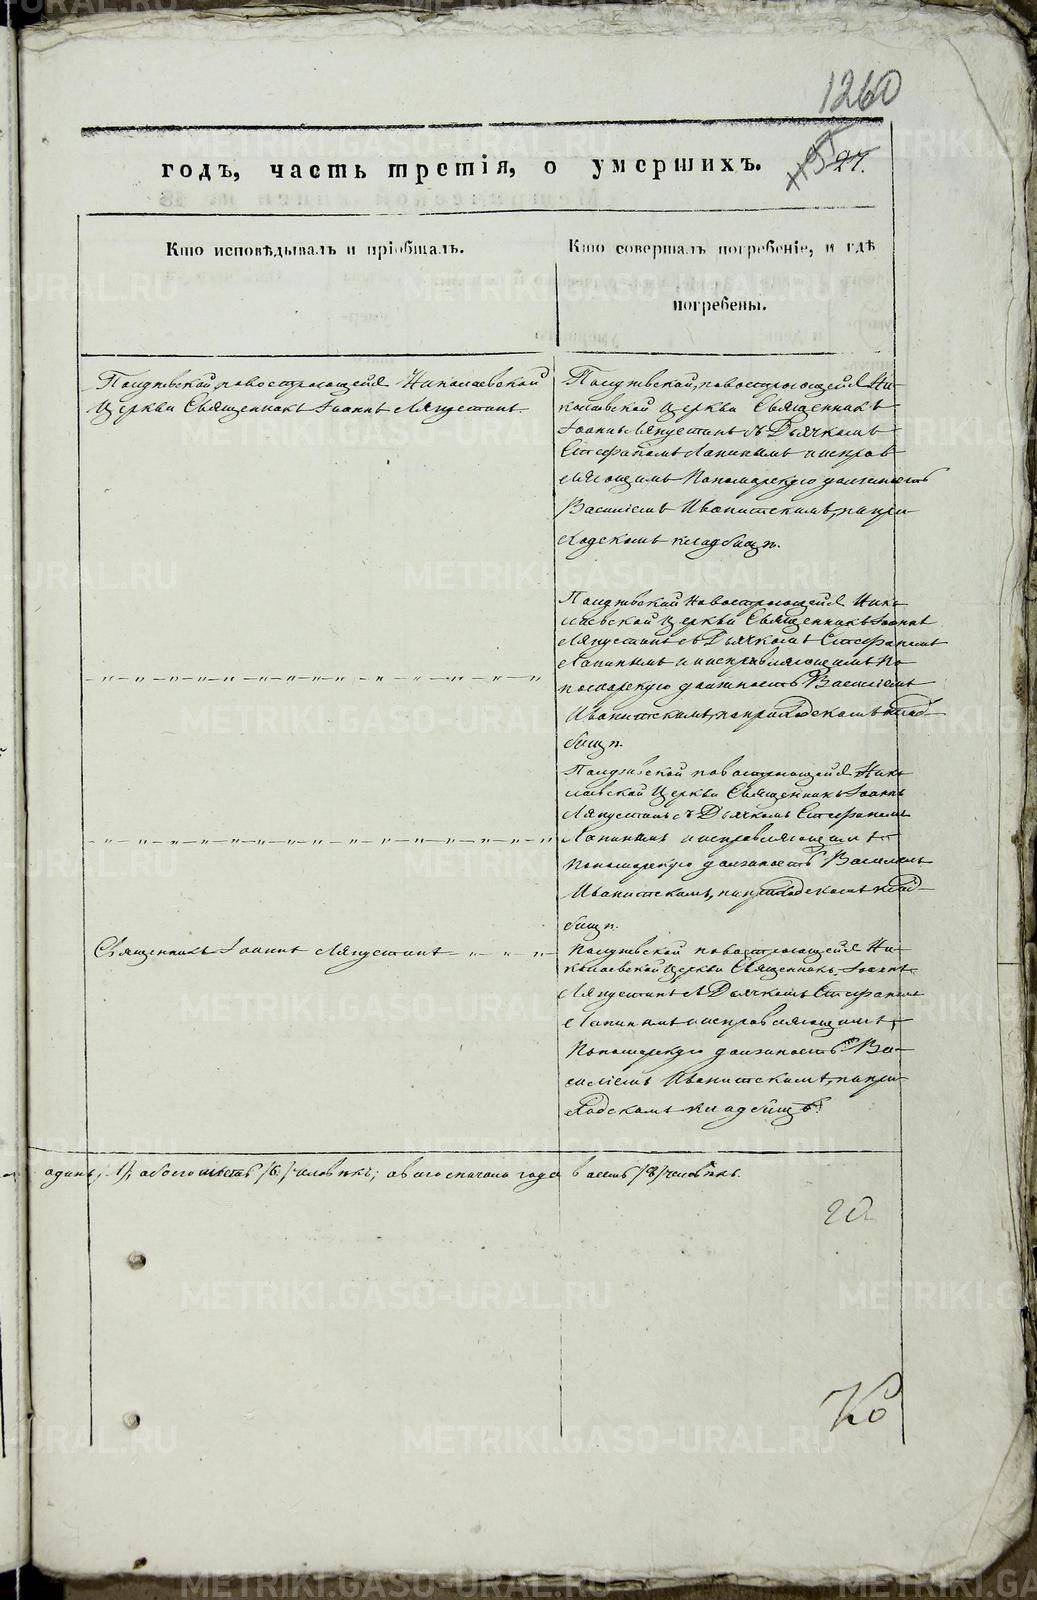 1260
27.
годъ, часть третія, о умершихъ.
Кто исповѣдывалъ и пріобщалъ.
Кто совершалъ погребеніе, и гдѣ
погребены.
новостроющейся Николаевской
Церкви Священникъ Іоаннъ Ляпустинъ
новостроющейся Ни-
колаевской Церкви Священникъ
Іоаннъ Ляпустинъ съ Дьячкомъ
Стефаномъ Лапинымъ и исправ
ляющимъ Пономарскую должность
Василіемъ на при
ходскомъ кладбищѣ.
Новостроющейся Нико
лаевской Церкви Священникъ Іоаннъ
Ляпустинъ съ Дьячкомъ Стефаномъ
Лапинымъ и исправляющимъ По
номарскую должность Василіемъ
на приходскомъ клад-
бищѣ.
новостроющейся Нико
лаевской Церкви Священникъ Іоаннъ
Ляпустинъ съ Дьячкомъ Стефаномъ
Лапинымъ и исправляющимъ
Пономарскую должность Василіемъ
на приходскомъ клад-
бищѣ.
Священникъ Іоаннъ Ляпустинъ
новостроющейся Ни-
колаевской Церкви Священникъ Іоаннъ
Ляпустинъ съ Дьячкомъ Стефаномъ
Лапинымъ и исправляющимъ
Пономарскую должность Ва-
силіемъ на при
ходскомъ кладбищѣ.
одинъ, /1/, обоего шесть /6/ человѣкъ; а всего сначала года восемь /8/ человѣкъ.
Ко
METRIKI.GASO-URAL.RU